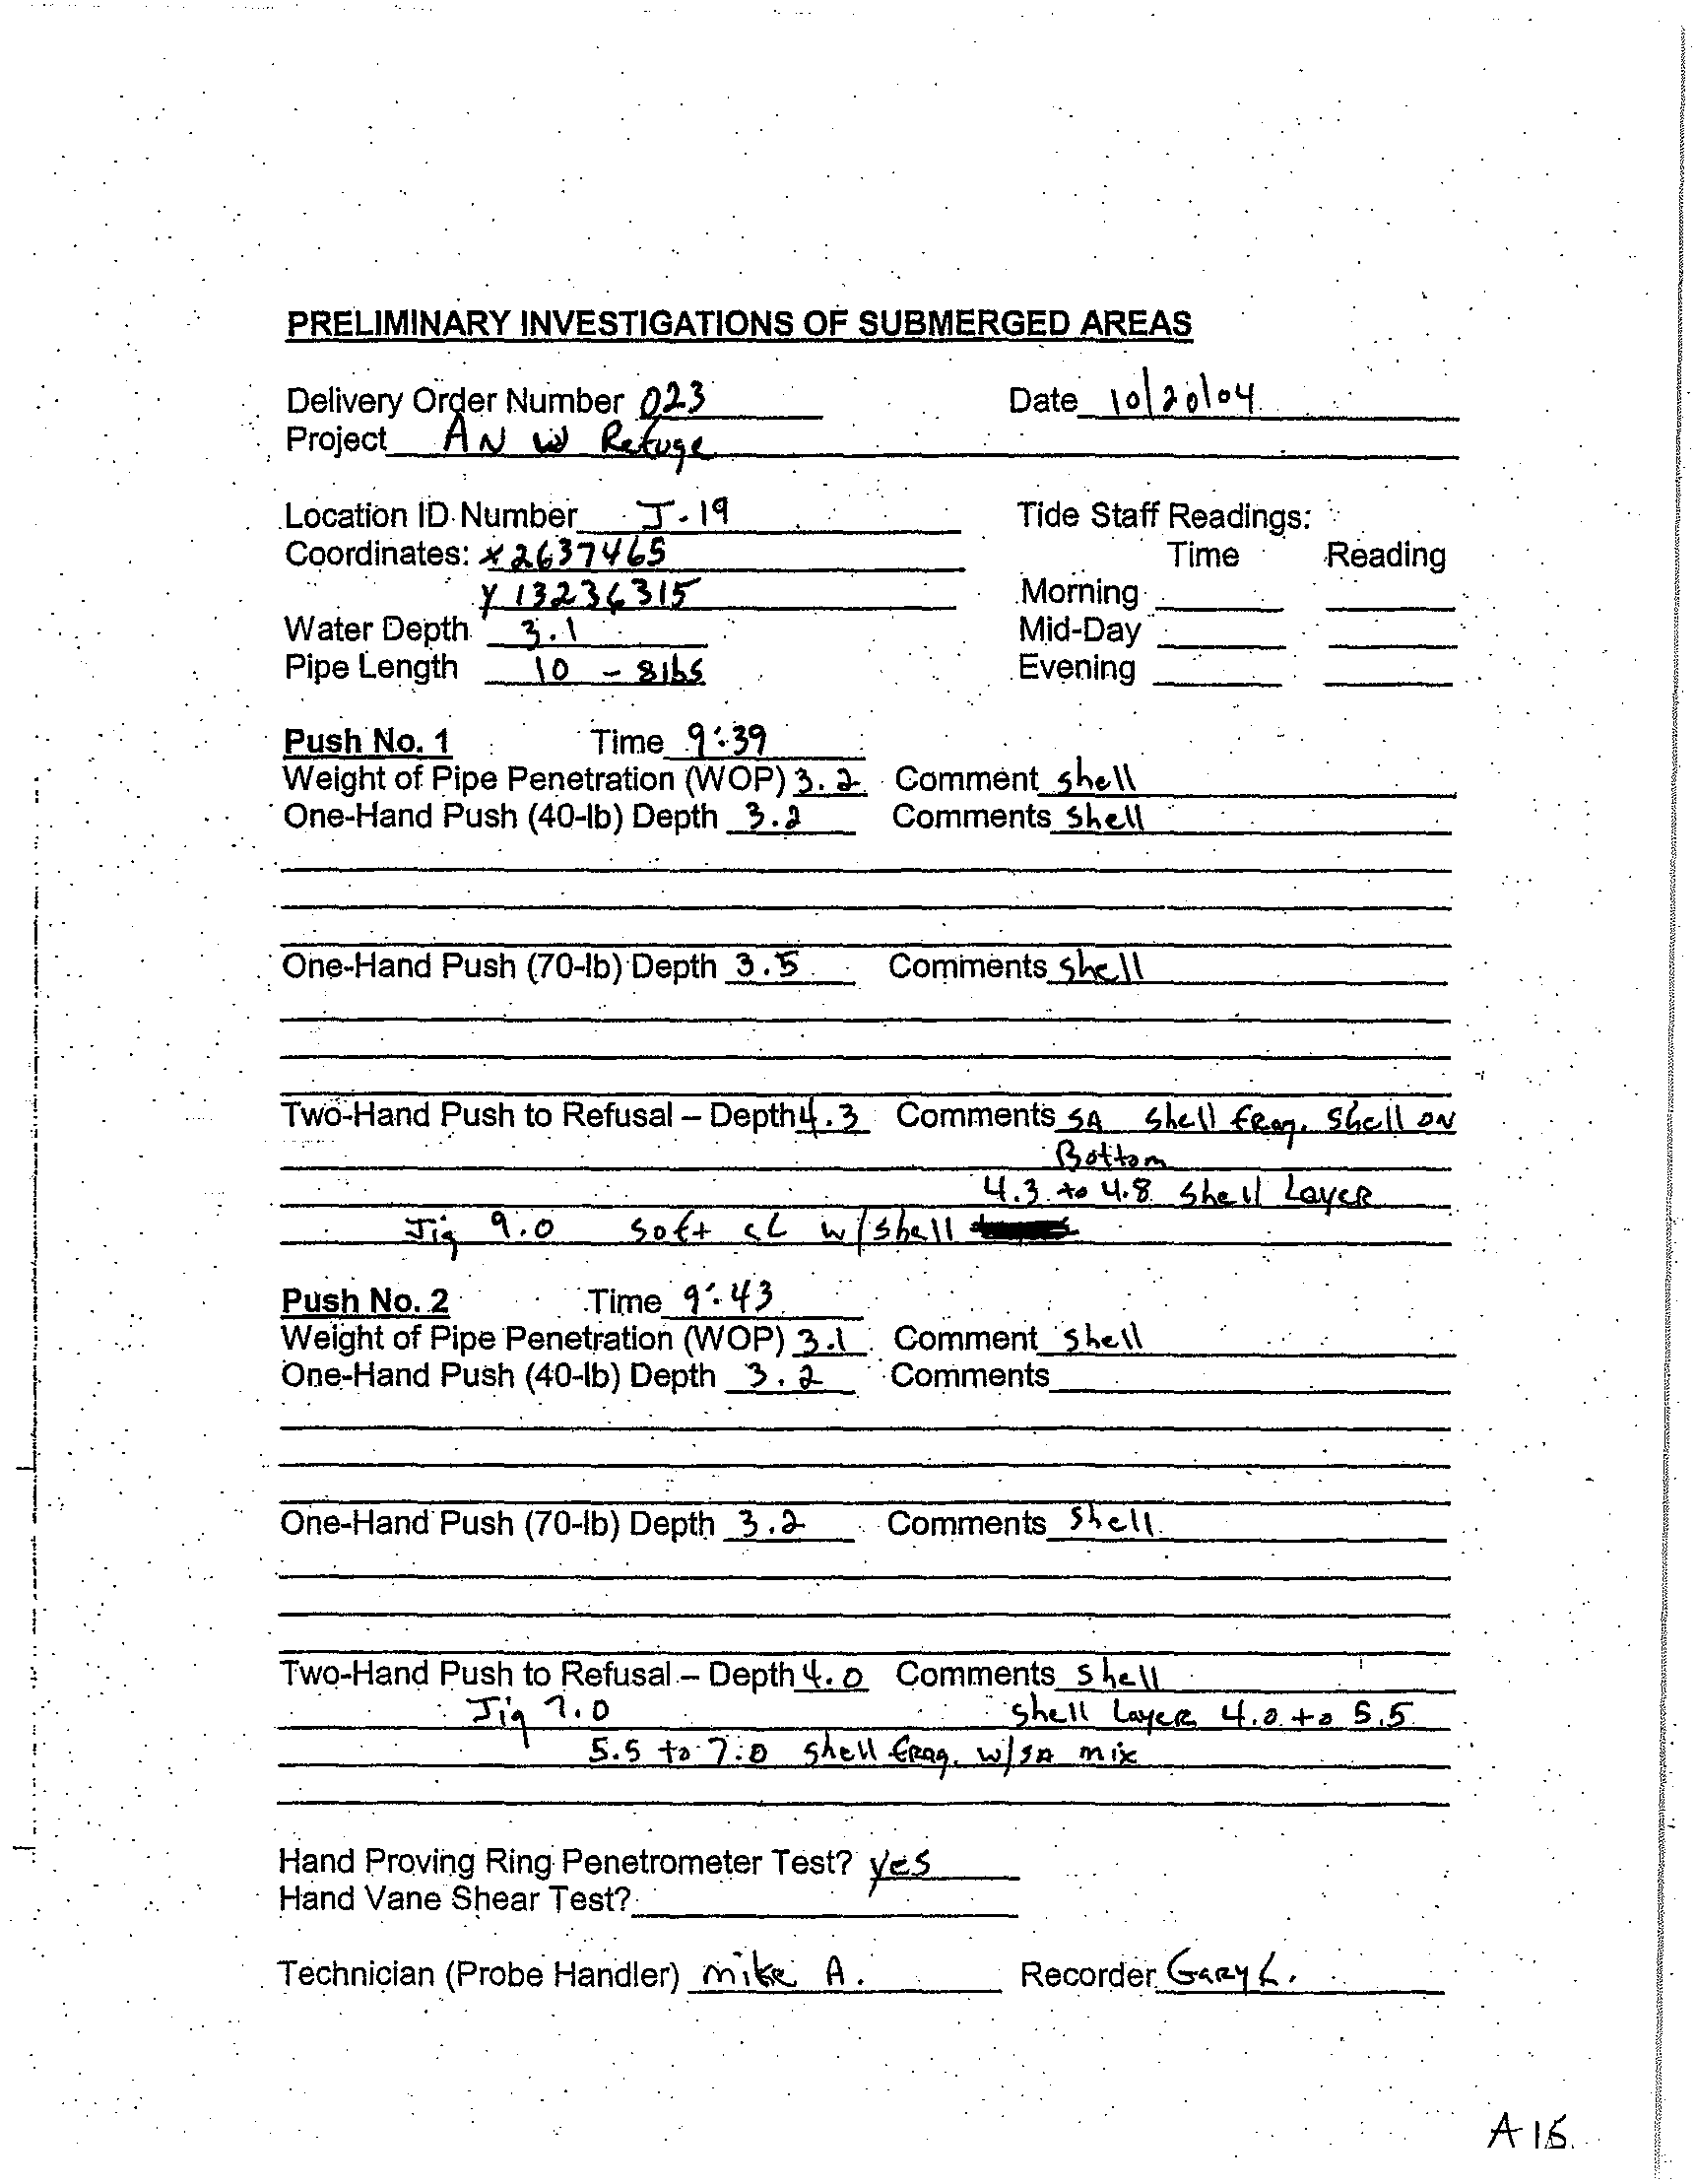 PRELIMINARY INVESTIGATIONS OF SUBMERGED AREAS
Delivery Order Number 023 Date 10/20/04
Project AN W Refuge
Location ID Number J-19 Tide Staff Readings:
Coordinates: x 2637465 Time Reading
y 13236315 Morning
Water Depth 3.1 Mid-Day
Pipe Length 10 - 8lbs Evening
Push No. 1 Time 9:39
Weight of Pipe Penetration (WOP) 3.2 Comment shell
One-Hand Push (40-lb) Depth 3.2 Comments shell
One-Hand Push (70-lb) Depth 3.5 Comments shell
Two-Hand Push to Refusal – Depth 4.3 Comments SA shell frag. shell on
Bottom
4.3 to 4.8 shell Layer
Jig 9.0 soft cL w/shell
Push No. 2 Time 9:43
Weight of Pipe Penetration (WOP) 3.1 Comment shell
One-Hand Push (40-lb) Depth 3.2 Comments
One-Hand Push (70-lb) Depth 3.2 Comments shell
Two-Hand Push to Refusal – Depth 4.0 Comments shell
Jig 7.0 shell Layer 4.0 to 5.5
5.5 to 7.0 shell frag. w/SA mix
Hand Proving Ring Penetrometer Test? yes
Hand Vane Shear Test?
Technician (Probe Handler) mike A. Recorder Gary L.
A16